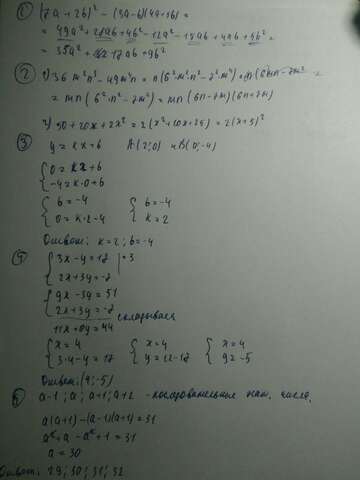 1) (7a+2b)² - (3a-b)(4a+3b) =
= 49a² + 28ab + 4b² - 12a² -
= 35a² + 17ab + 9b²
2) 36 m²n³ - 49m⁴n = n(6²m²n² - 7²m⁴) =
= mn(6²·n² - 7m²) = mn(6n-7m)(6n+7m)
2) 50+20x+2x² = 2(x²+10x+25) = 2(x+5)²
3) y = kx+b A(2;0) и B(0;-4)
{0 = kx+b
{-4 = k·0+b
{b = -4 {b = -4
{0 = k·2-4 {k = 2
Ответ: k = 2; b = -4
4) {3x-y = 17 |·3
{2x+3y = -7
{9x-3y = 51
{2x+3y = -7 складываем
11x+0y = 44
{x = 4 {x = 4 {x = 4
{3·4-y = 17 {y = 12-17 {y = -5
Ответ: (4; -5)
5) a-1; a; a+1; a+2 - последовательные нат. числа.
a(a+1) - (a-1)(a+1) = 31
a²+a - a²+1 = 31
a = 30
Ответ: 29; 30; 31; 32